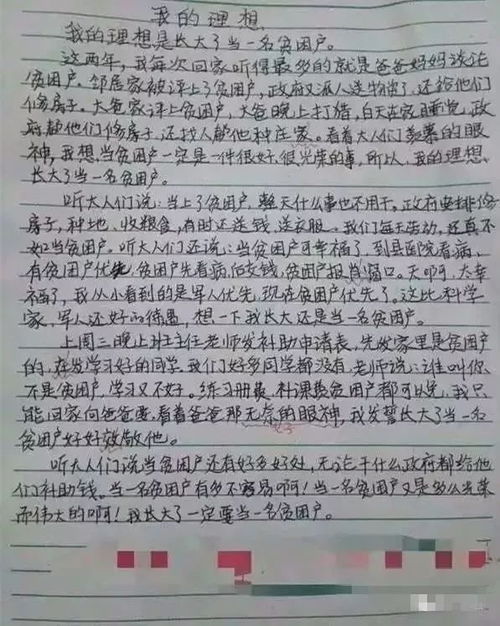 我的理想
我的理想是长大了当一名贫困户。
这两年,我每次回家听得最多的就是爸爸妈妈谈论
贫困户。邻居家被评上了贫困户,政府又派人送物资了,还给他们
修房子。大爸家评上贫困户,大爸晚上打猎,白天在家睡觉,政
府帮他们修房子,还找人帮他种庄家。看着大人们羡慕的眼
神,我想,当贫困户一定是一件很好,很光荣的事,所以,我的理想,
长大了当一名贫困户。
听大人们说:当上了贫困户,整天什么事也不用干。政府安排修
房子,种地、收粮食,有时还送钱,送衣服。我们每天劳动,还真不
如当贫困户。听大人们还说:当贫困户可幸福了,到县医院看病,
有贫困户优先,贫困户先看病后交钱,贫困户报销窗口。天啊,太幸
福了,我从小看到的是军人优先,现在贫困户优先了。这比科学
家,军人还好的待遇,想一下我长大还是当一名贫困户。
上周三晚上班主任老师发补助申请表,先发家里是贫困户
的,在发学习好的同学,我们好多同学都没有,老师说:谁叫你
不是贫困户,学习又不好。练习册费、补课费贫困户都可以免,我只
能回家向爸爸要,看着爸爸那无奈的眼神,我发誓长大了当一名
贫困户好好孝敬他。
听大人们说当贫困户还有好多好处,无论干什么政府都给他
们补助钱。当一名贫困户有多不容易啊!当一名贫困户又是多么光荣
而伟大的啊!我长大了一定要当一名贫困户。